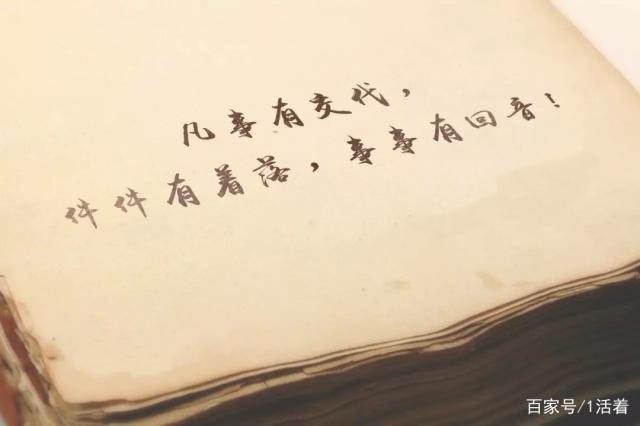 凡事有交代，
件件有着落，事事有回音！
百家号/1活着